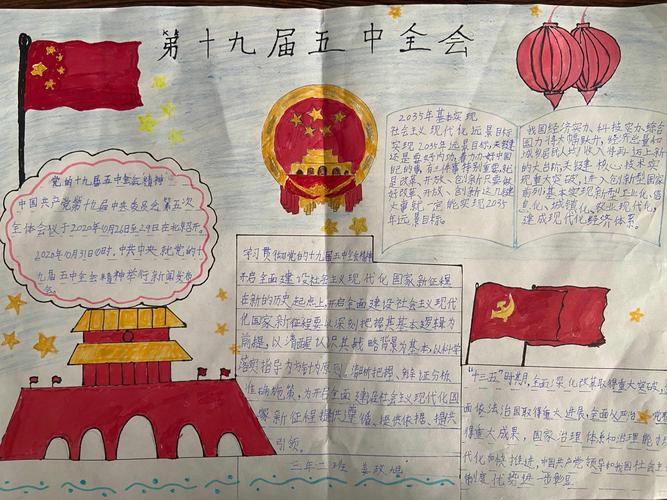 第十九届五中全会
党的十九届五中全会精神
中国共产党第十九届中央委员会第五次
全体会议于2020年10月26至29日在北京召开。
2020年10月31日10时，中共中央就党的十
九届五中全会精神举行新闻发布
会
2035年基本实现
社会主义现代化远景目标
实现2035年远景目标，关键
还是要好内功，着力办好中国
改革、开放、创新这几键
大事就一定能实现2035
年远景目标。
我国经济实力、科技实力、综合
国力将大幅跃升，经济总量和
城乡居民人均收入将再迈上新
的大台阶，关键核心技术实
现重大突破，进入创新型国家
前列，基本实现新型工业化、信
息化、城镇化、农业现代化，
建成现代化经济体系。
学习贯彻党的十九届五中全会精神
开启全面建设社会主义现代化国家新征程
在新的历史起点上，开启全面建设社会主义现代
化国家新征程要以深刻把握其基本逻辑为
前提，以清醒认识其战略背景为基本，以科学
准确施策，为开启全面建设社会主义现代化国
家新征程提供遵循、提供依据、提供
引领。
三年二班
"十三五"时期，全面深化改革取得重大突破，
面依法治国取得重大进展，全面从严治党取
得重大成果，国家治理体系和治理能力
代化加快推进，中国共产党领导和我国社会主
制度优势进一步彰显